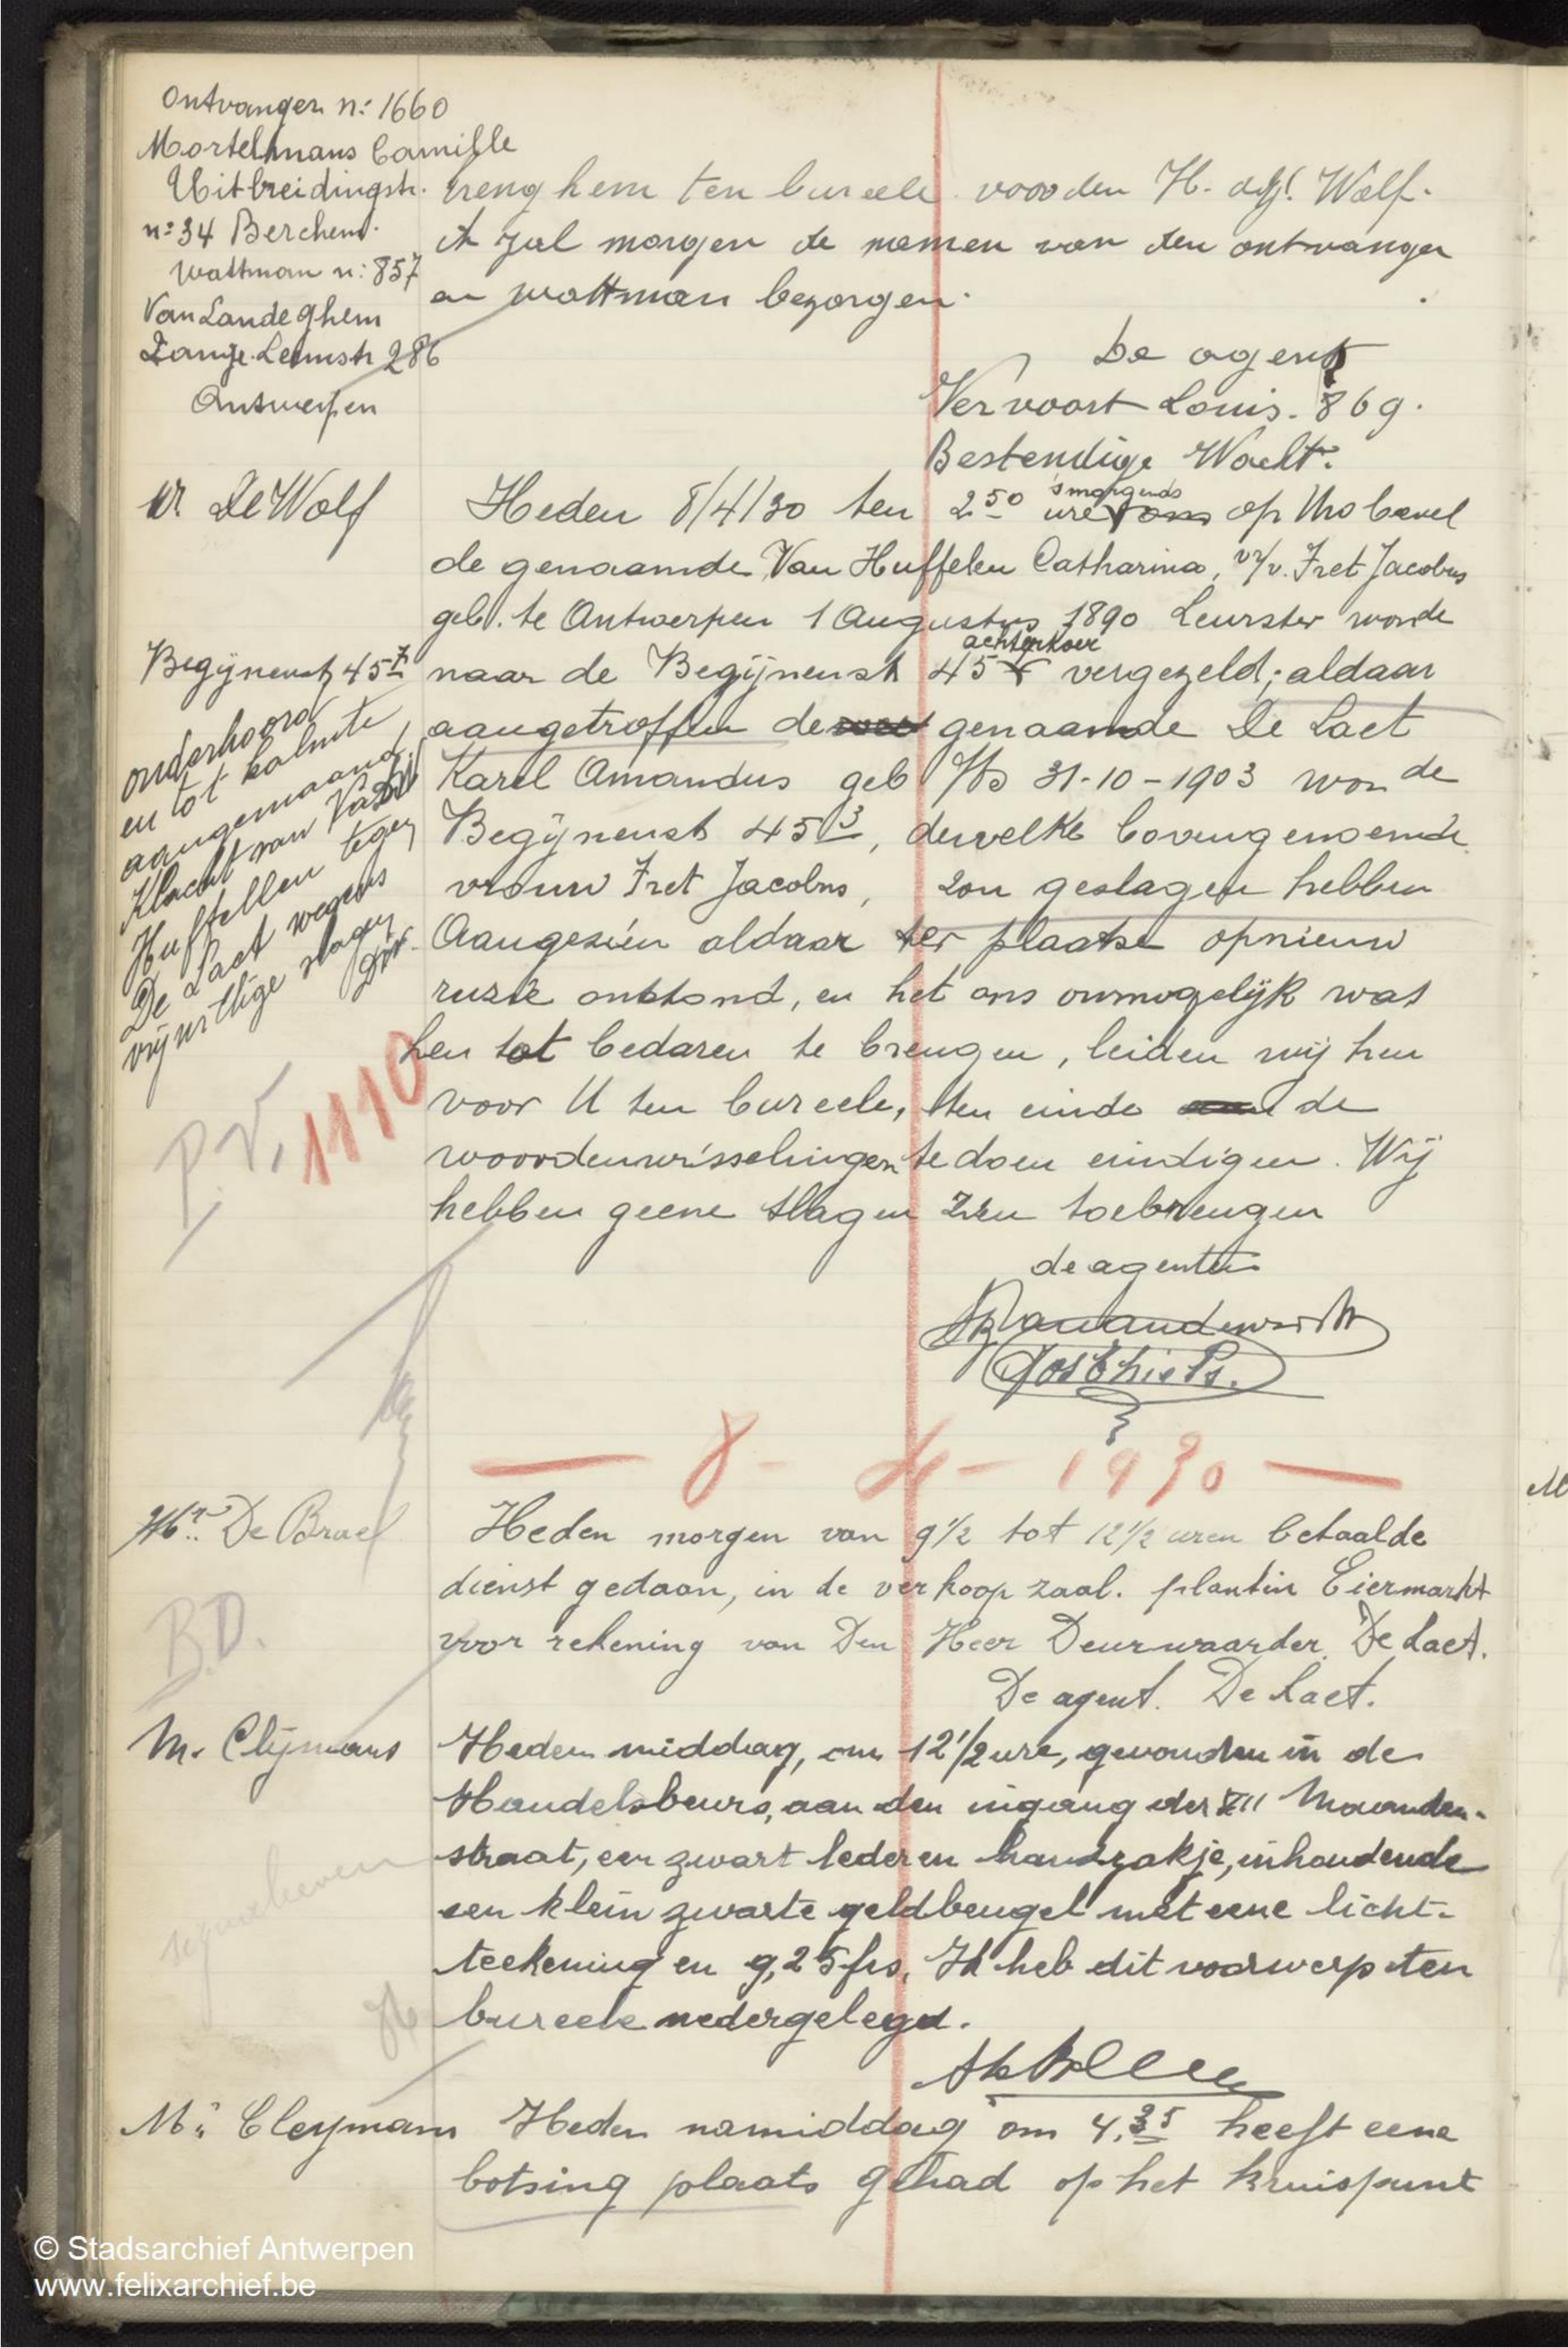 Ontvanger n: 1660
Mortelmans Camille
Uitbreidingstr.
n: 34 Berchem.
Wattman n: 857
Van Landeghem
Lange Leemstr 286
Antwerpen
breng hem ten bureele voor den H. adj! Wolf.
Ik zal morgen de namen van den ontvanger
en wattman bezorgen.
De agent
Vervoort Louis. 869.
Bestendige Wacht.
De Wolf
Heden 8/4/30 ten 2 50 ure 's morgends op bevel
de genaamde Van Huffelen Catharina, vr/v. Fret Jacobus
geb. te Antwerpen 1 Augustus 1890 Leurster wonde
Begijnenst 45 7
naar de Begijnenst 45 achterkoer vergezeld; aldaar
aangetroffen de genaamde De Laet
Karel Amandus geb 31-10-1903 won de
Begijnenst 45 3, dewelke bovengenoemde
vrouw Fret Jacobus, zou geslagen hebben
Aangezien aldaar ter plaatse opnieuw
ruzie ontstond, en het ons onmogelijk was
hen tot bedaren te brengen, leiden wij hen
voor U ten bureele, ten einde de
woordenwisselingen te doen eindigen. Wij
hebben geene slagen zien toebrengen
de agenten
onderhoord
en tot kalmte
aangemaand
Klacht van Van
Huffellen tegen
De Laet wegens
vrijwillige slagen
P.V. 1110
8 - 4 - 1930
Hr. De Brael
B.D.
Heden morgen van 9 1/2 tot 12 1/2 uren betaalde
dienst gedaan, in de verkoop zaal. plantin Eiermarkt
voor rekening van Den Heer Deurwaarder. De Laet.
De agent. De Laet.
M. Clijmans
Heden middag, om 12 1/2 ure, gevonden in de
Handelsbeurs, aan den ingang der XII Maanden-
straat, een zwart lederen handzakje, inhoudende
een klein zwarte geldbeugel met eene licht-
teekening en 9,25 frs. Ik heb dit voorwerp ten
bureele nedergelegd.
M. Cleymans
Heden namiddag om 4.35 heeft eene
botsing plaats gehad op het kruispunt
© Stadsarchief Antwerpen
www.felixarchief.be